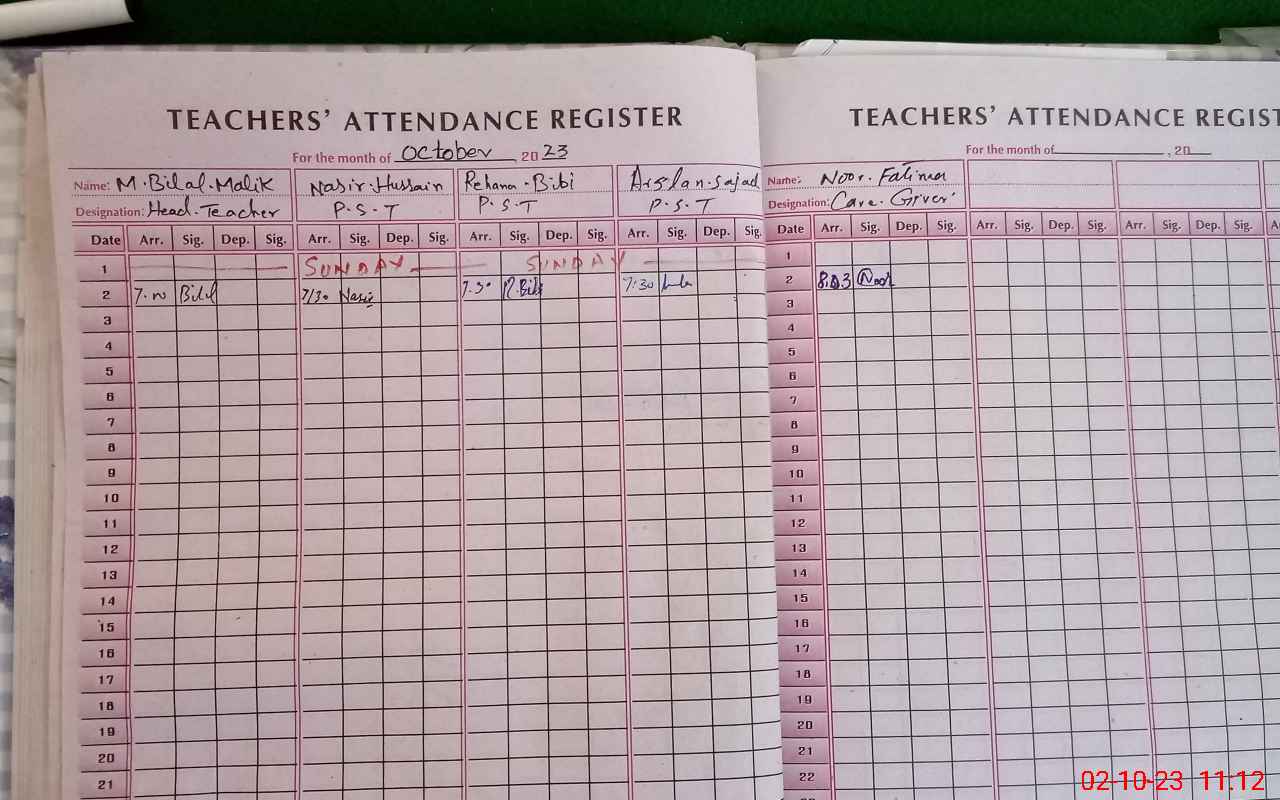 TEACHERS' ATTENDANCE REGISTER
For the month of October, 2023
Name: M. Bilal. Malik Nasir. Hussain Rehana. Bibi Arslan. Sajad
Designation: Head. Teacher P.S.T P.S.T P.S.T
Date Arr. Sig. Dep. Sig. Arr. Sig. Dep. Sig. Arr. Sig. Dep. Sig. Arr. Sig. Dep. Sig.
1 SUNDAY SUNDAY
2 Bilal 7/30 Nasir 7.30 R.Bibi 7:30
3
4
5
6
7
8
9
10
11
12
13
14
15
16
17
18
19
20
21
TEACHERS' ATTENDANCE REGIST
For the month of , 20
Name: Noor. Fatima
Designation: Care. Giver
Date Arr. Sig. Dep. Sig. Arr. Sig. Dep. Sig. Arr. Sig. Dep. Sig. A
1
2 8:03 Noor
3
4
5
6
7
8
9
10
11
12
13
14
15
16
17
18
19
20
21
22
02-10-23 11:12